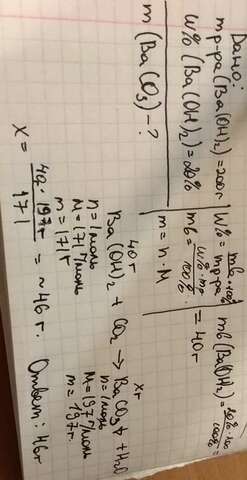 Дано:
mр-ра(Ba(OH)₂)=200г
W%(Ba(OH)₂)=20%
m(BaCO₃)-?
W%= mв·100% / mр-ра
mв= W%·mр / 100% = 40г
m=n·M
mв(Ba(OH)₂)=
40г
Xг
Ba(OH)₂ + CO₂ → BaCO₃↓ + H₂O
n=1моль
n=1моль
M=171г/моль
M=197г/моль
m=171г
m=197г.
X= 40г·197г / 171 = ~46г.
Ответ: 46г